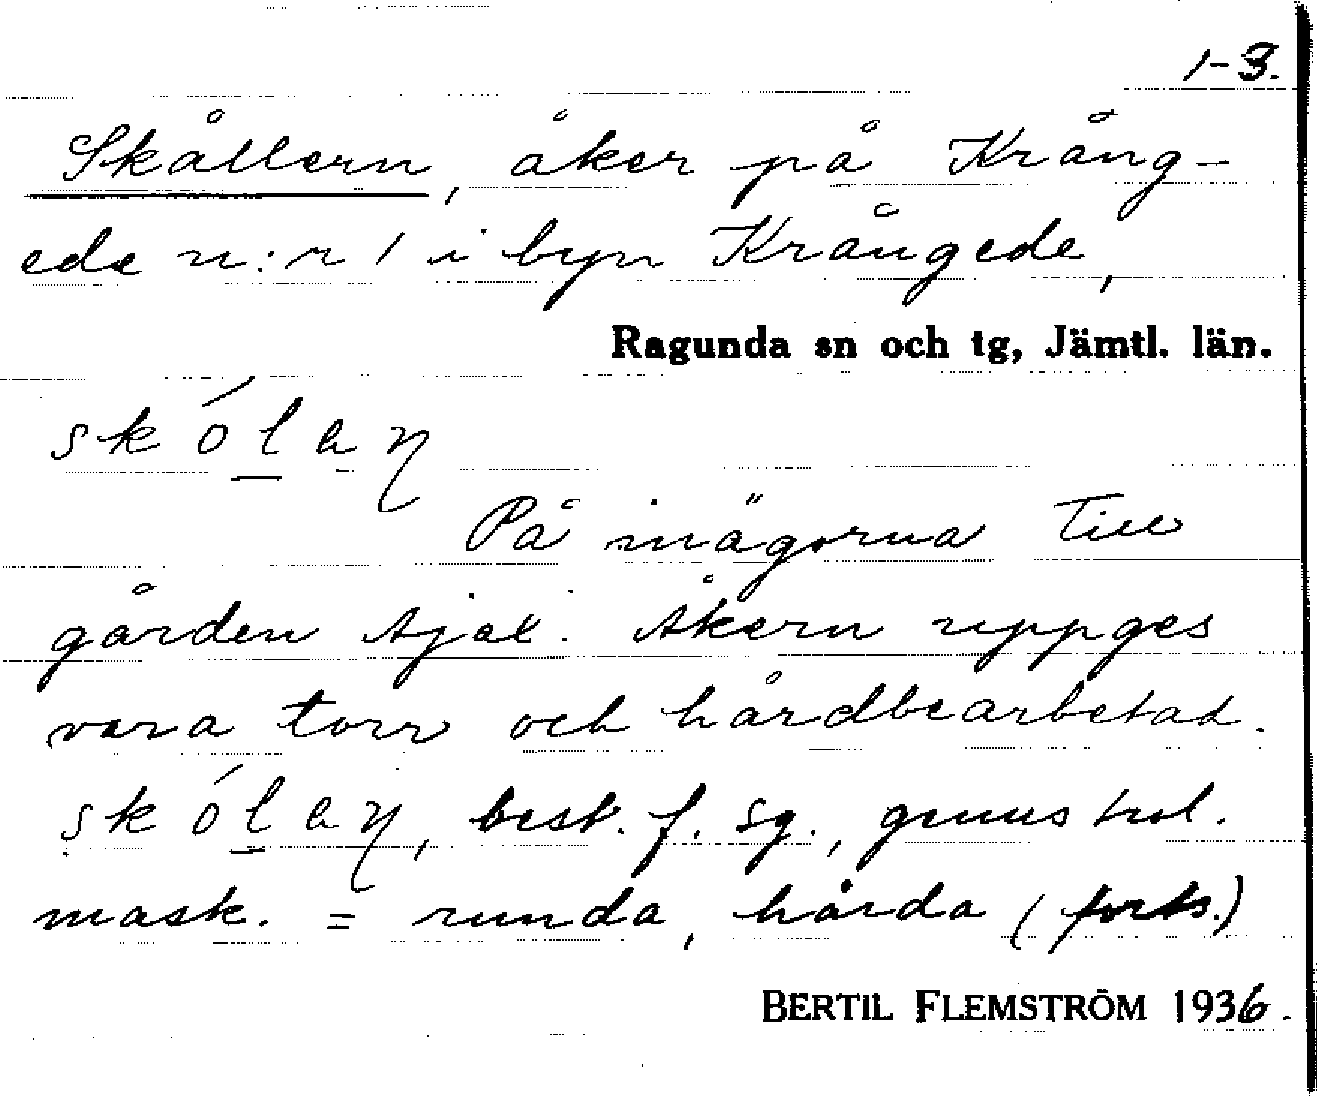 1-3.
Skållern, åker på Krång-
ede n:r 1 i byn Krångede,
Ragunda sn och tg, Jämtl. län.
skólaŋ
På inägorna till
gården själ. Åkern uppges
vara torr och hårdbearbetad.
skólaŋ, best. f. sg., genus trol.
mask. = runda, hårda (forts.)
BERTIL FLEMSTRÖM 1936.